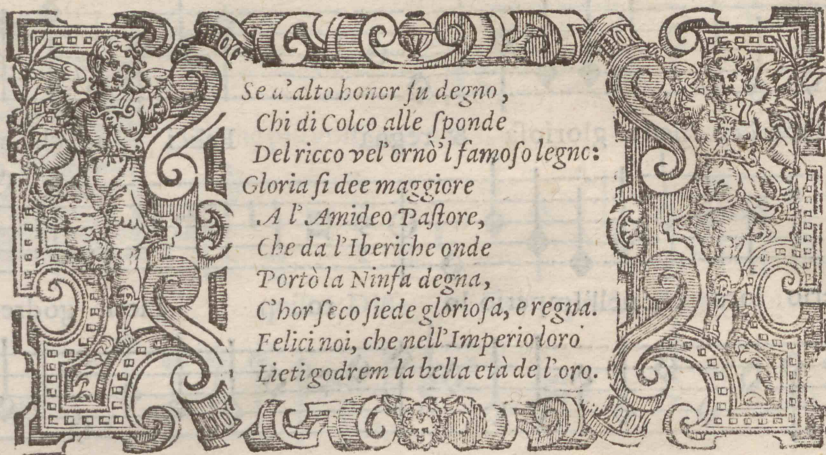 Se d'alto honor fu degno,
Chi di Colco alle ſponde
Del ricco vel'ornò'l famoſo legno:
Gloria ſi dee maggiore
A l'Amideo Paſtore,
Che da l'Iberiche onde
Portò la Ninfa degna,
C'hor ſeco ſiede glorioſa, e regna.
Felici noi, che nell'Imperio loro
Lieti godrem la bella età de l'oro.